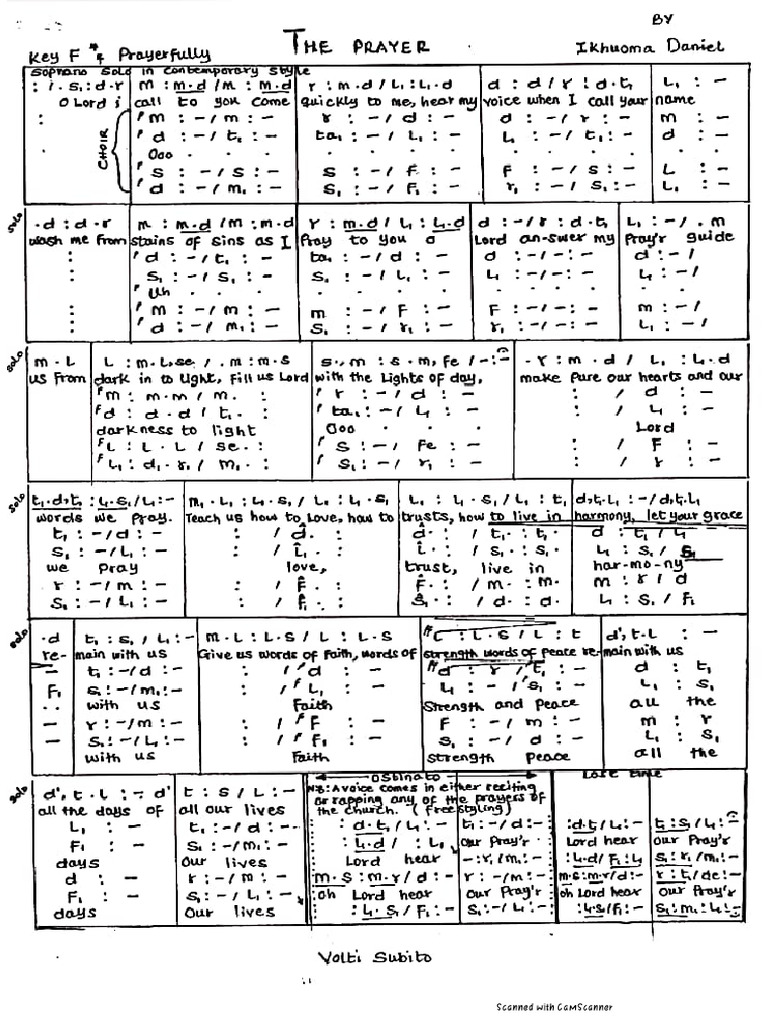 BY
THE PRAYER
Key F# & Prayerfully
Ikhuoma Daniel
Soprano Solo in contemporary style
: i . s₁ : d . r | m : m . d / m : m . d | r : m . d / L₁ : L₁ . d | d : d / r : d . t₁ | L₁ : –
O Lord i | call to you come | quickly to me, hear my | voice when I call your | name
CHOIR
: | m : – / m : – | r : – / d : – | d : – / r : – | m : –
: | d : – / t₁ : – | ta₁ : – / L₁ : – | L₁ : – / t₁ : – | d : –
Ooo
s : – / s : – | s : – / F : – | F : – / s : – | L : –
d : – / m₁ : – | s₁ : – / F₁ : – | r₁ : – / s₁ : – | L₁ : –
solo
. d : d . r | m : m . d / m : m . d | r : m . d / L₁ : L₁ . d | d : – / r : d . t₁ | L₁ : – / . m
wash me from | stains of sins as I | Pray to you o | Lord an-swer my | Pray'r guide
: | d : – / t₁ : – | ta₁ : – / d : – | d : – / – : – | d : – /
: | s₁ : – / s₁ : – | s₁ : – / L₁ : – | L₁ : – / – : – | L₁ : – /
Uh
: | m : – / m : – | m : – / F : – | F : – / – : – | m : – /
: | d : – / m₁ : – | s₁ : – / r₁ : – | r₁ : – / – : – | L₁ : – /
solo
m . L | L : m . L, se / . m : m . s | s ., m : s . m, Fe / – : – | – r : m . d / L₁ : L₁ . d
us from | dark in to light, fill us Lord | with the Lights of day, | make pure our hearts and our
m : m . m / m . : | r : – / d : – | : / d : –
d : d . d / t₁ . : | ta₁ : – / L₁ : – | : / L₁ : –
darkness to light | Ooo | Lord
L : L . L / se . : | s : – / Fe : – | : / F : –
L₁ : d₁ . r₁ / m₁ . : | s₁ : – / r₁ : – | : / r : –
solo
t₁ . d, t₁ : L₁ . s₁ / L₁ : – | m₁ . L₁ : L₁ . s₁ / L₁ : L₁ . s₁ | L₁ : L₁ . s₁ / L₁ : t₁ | d, t₁ . L₁ : – / d, t₁ . L₁
words we pray. | Teach us how to Love, how to | trusts, how to live in | harmony, let your grace
t₁ : – / d : – | : / d . : | d . : / t₁ . : t₁ . | d : t₁ / L₁
s₁ : – / L₁ : – | : / L₁ . : | L . : / s₁ . : s₁ . | L₁ : s₁ / s₁
we pray | love, | trust, live in | har-mo-ny
r : – / m : – | : / F . : | F . : / m . : m . | m : r / d
s₁ : – / L₁ : – | : / F₁ . : | s₁ . : / d . : d . | L₁ : s₁ / F₁
solo
. d | t₁ : s₁ / L₁ : – | m . L : L . s / L : L . s | L : L . s / L : t | d', t . L : –
re- | main with us | Give us words of Faith, words of | strength words of peace re- | main with us
– | t₁ : – / d : – | : / d : – | d : r / t₁ : – | d : t₁
F₁ | s₁ : – / m₁ : – | : / L₁ : – | L₁ : – / s₁ : – | L₁ : s₁
with us | Faith | Strength and Peace | all the
– | r : – / m : – | : / F : – | F : – / m : – | m : r
– | s₁ : – / L₁ : – | : / F₁ : – | s₁ : – / d : – | L₁ : s₁
with us | Faith | strength peace | all the
OSTINATO
Last time
solo
d', t . L : – . d' | t : s / L : –
N.B: A voice comes in either reciting
or rapping any of the prayers of
the church. (freestyling)
all the days of | all our lives
L₁ : – | t₁ : – / d : – | : d . t₁ / L₁ : – | t₁ : – / d : – | : d . t₁ / L₁ : – | t₁ : s₁ / L₁ : –
F₁ : – | s₁ : – / m₁ : – | : L₁ . d / : L₁ | Our Pray'r | Lord hear | our Pray'r
days | Our lives | Lord hear | – : r₁ / m₁ : – | : L₁ . d / F₁ : L₁ | s₁ : r₁ / m₁ : –
d : – | r : – / m : – | m . s : m . r / d : – | r : – / m : – | m . s : m . r / d : – | r : t₁ / de : –
F₁ : – | s₁ : – / L₁ : – | oh Lord hear | Our Pray'r | oh Lord hear | Our Pray'r
days | Our lives | : L₁ . s₁ / F₁ : – | s₁ : – / L₁ : – | : L₁ . s₁ / F₁ : – | s₁ : m₁ : L₁ : –
Volti Subito
Scanned with CamScanner